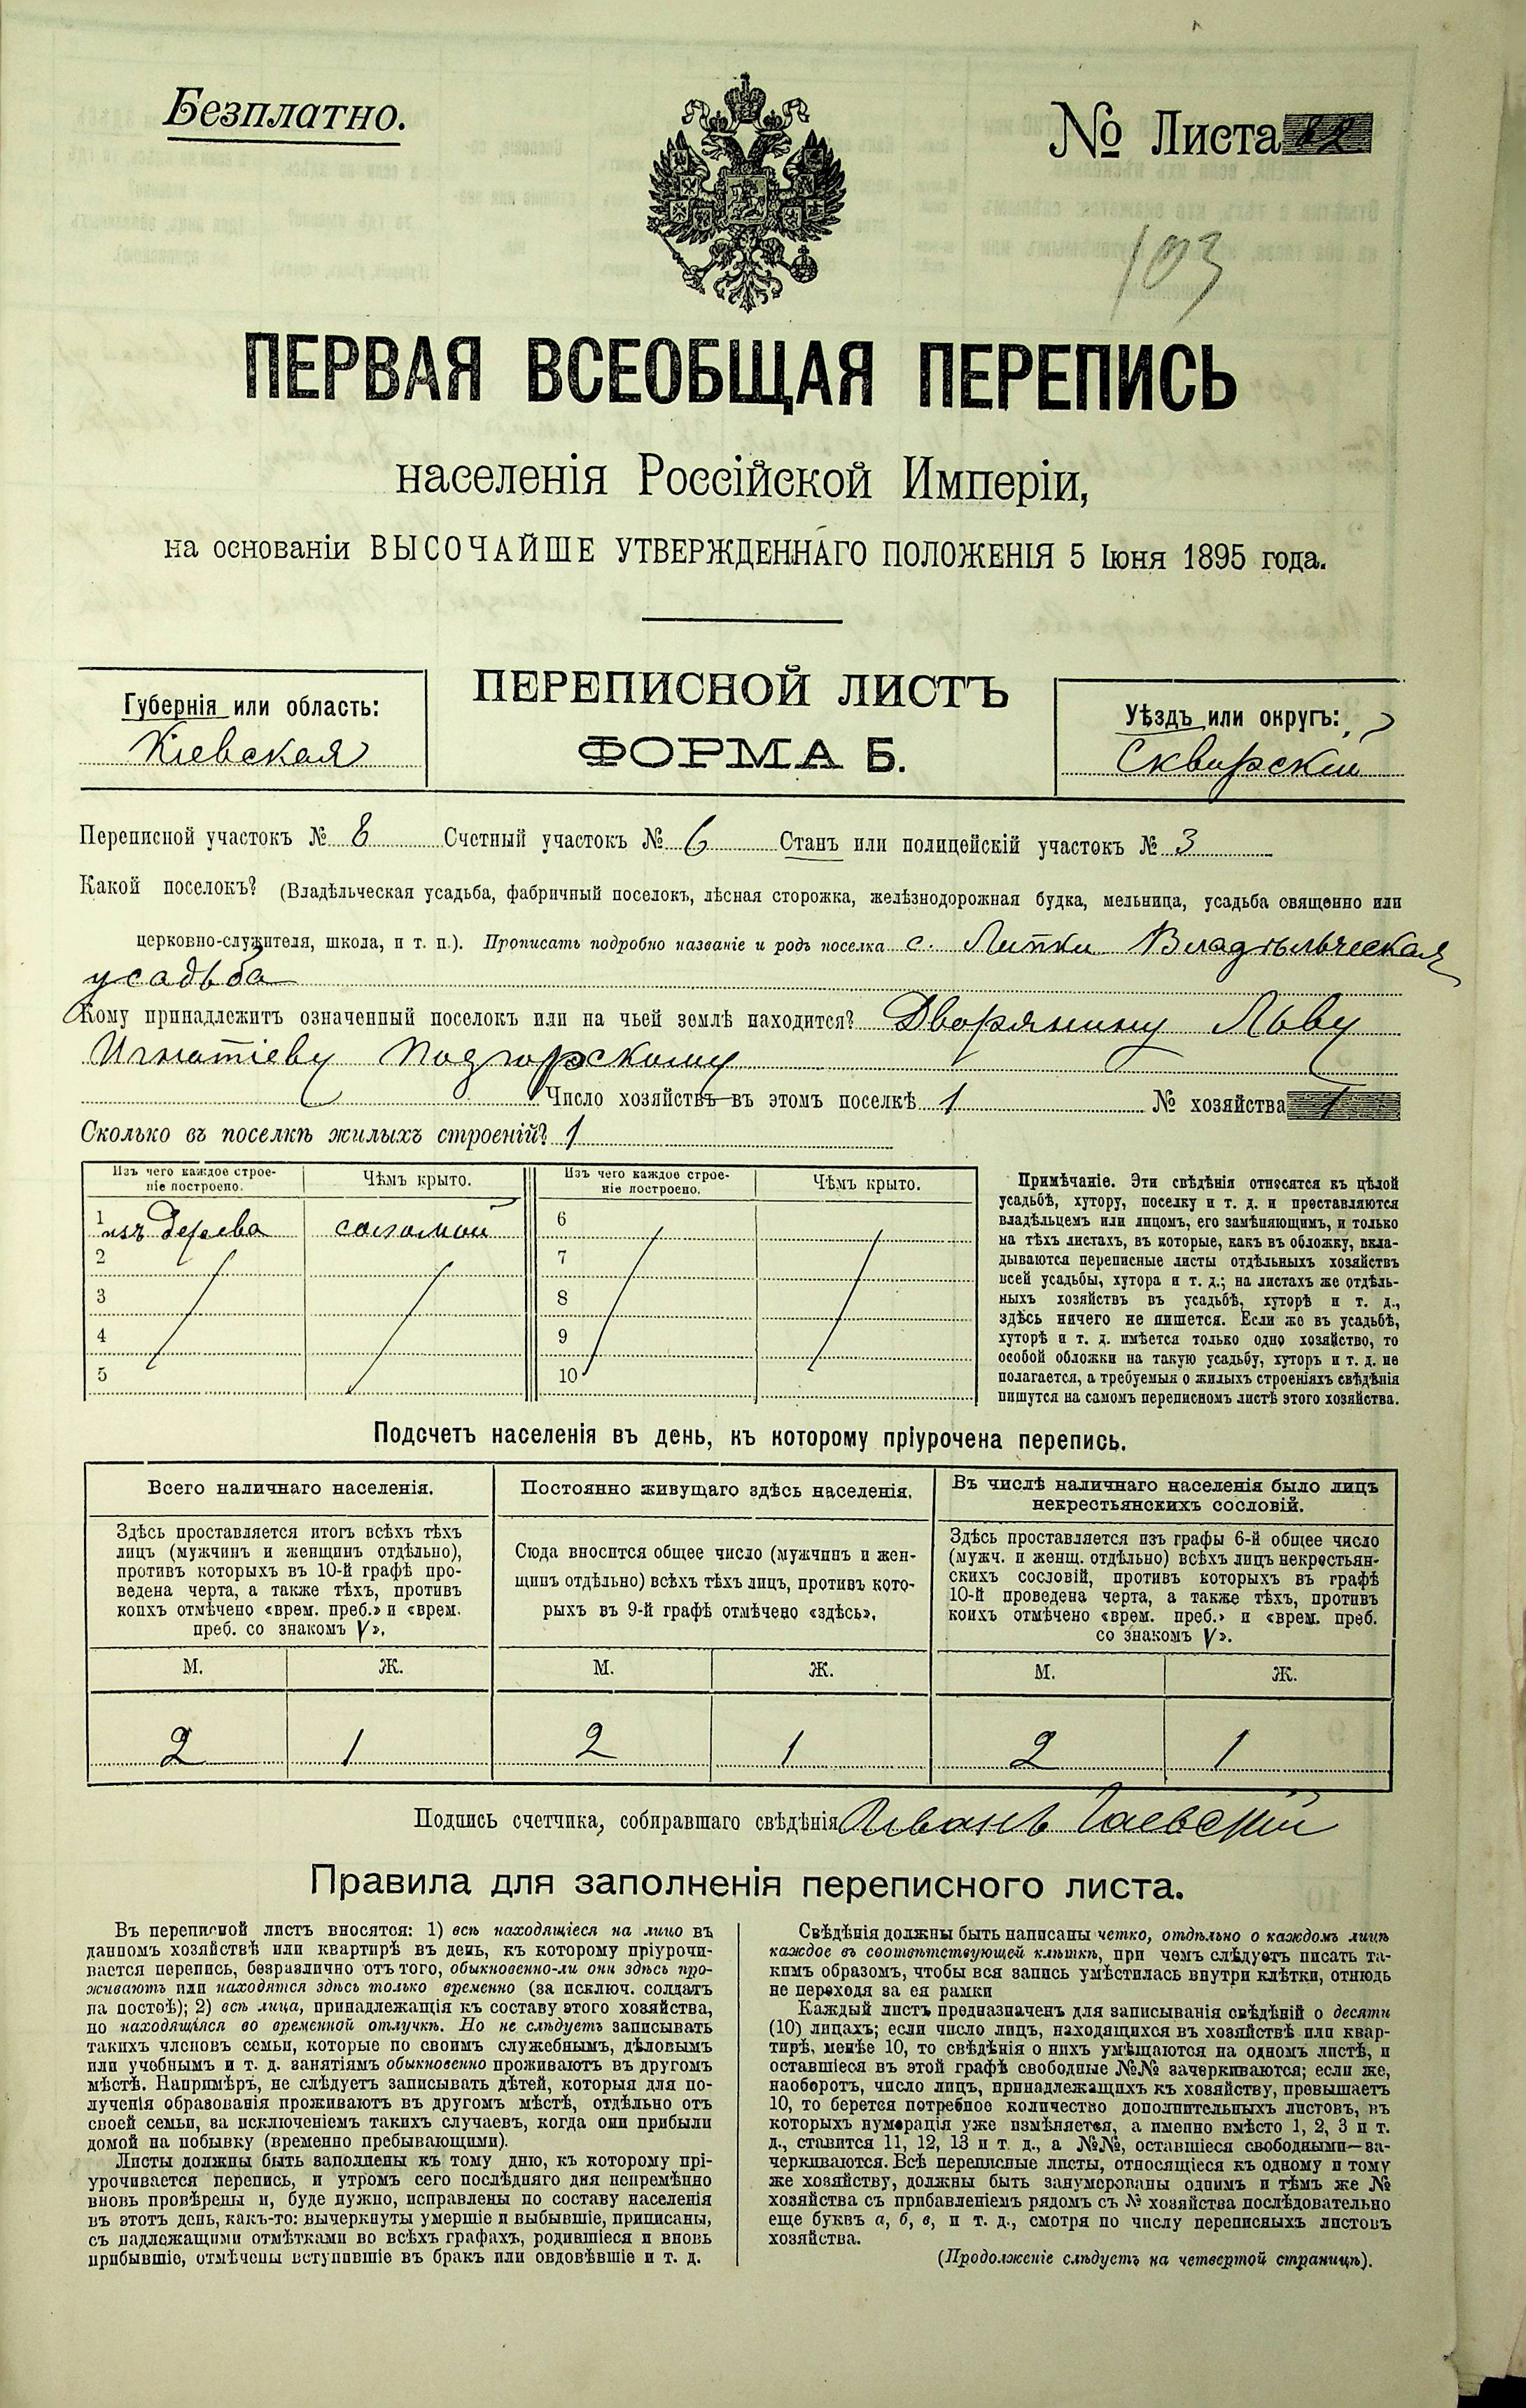 Безплатно.
№ Листа 22
103
ПЕРВАЯ ВСЕОБЩАЯ ПЕРЕПИСЬ
населенія Россійской Имперіи,
на основаніи ВЫСОЧАЙШЕ УТВЕРЖДЕННАГО ПОЛОЖЕНІЯ 5 Іюня 1895 года.
Губернія или область:
Кіевская
ПЕРЕПИСНОЙ ЛИСТЪ
ФОРМА Б.
Уѣздъ или округъ:
Сквирскій
Переписной участокъ № 8 Счетный участокъ № 6 Станъ или полицейскій участокъ № 3
Какой поселокъ? (Владѣльческая усадьба, фабричный поселокъ, лѣсная сторожка, желѣзнодорожная будка, мельница, усадьба священно или
церковно-служителя, школа, и т. п.). Прописать подробно названіе и родъ поселка с. Липки Владѣльческая
усадьба
Кому принадлежитъ означенный поселокъ или на чьей землѣ находится? Дворянину Льву
Игнатіеву Подгорскому
Число хозяйствъ въ этомъ поселкѣ 1 № хозяйства 1
Сколько въ поселкѣ жилыхъ строеній? 1
Изъ чего каждое строе-
ніе построено.
Чѣмъ крыто.
Изъ чего каждое строе-
ніе построено.
Чѣмъ крыто.
1 изъ дерева соломой 6
2 7
3 8
4 9
5 10
Примѣчаніе. Эти свѣдѣнія относятся къ цѣлой
усадьбѣ, хутору, поселку и т. д. и проставляются
владѣльцемъ или лицомъ, его замѣняющимъ, и только
на тѣхъ листахъ, въ которые, какъ въ обложку, вкла-
дываются переписные листы отдѣльныхъ хозяйствъ
всей усадьбы, хутора и т. д.; на листахъ же отдѣль-
ныхъ хозяйствъ въ усадьбѣ, хуторѣ и т. д.,
здѣсь ничего не пишется. Если же въ усадьбѣ,
хуторѣ и т. д. имѣется только одно хозяйство, то
особой обложки на такую усадьбу, хуторъ и т. д. не
полагается, а требуемыя о жилыхъ строеніяхъ свѣдѣнія
пишутся на самомъ переписномъ листѣ этого хозяйства.
Подсчетъ населенія въ день, къ которому пріурочена перепись.
Всего наличнаго населенія.
Здѣсь проставляется итогъ всѣхъ тѣхъ
лицъ (мужчинъ и женщинъ отдѣльно),
противъ которыхъ въ 10-й графѣ про-
ведена черта, а также тѣхъ, противъ
коихъ отмѣчено «врем. преб.» и «врем.
преб. со знакомъ V».
Постоянно живущаго здѣсь населенія.
Сюда вносится общее число (мужчинъ и жен-
щинъ отдѣльно) всѣхъ тѣхъ лицъ, противъ кото-
рыхъ въ 9-й графѣ отмѣчено «здѣсь».
Въ числѣ наличнаго населенія было лицъ
некрестьянскихъ сословій.
Здѣсь проставляется изъ графы 6-й общее число
(мужч. и женщ. отдѣльно) всѣхъ лицъ некрестьян-
скихъ сословій, противъ которыхъ въ графѣ
10-й проведена черта, а также тѣхъ, противъ
коихъ отмѣчено «врем. преб.» и «врем. преб.
со знакомъ V».
М. Ж. М. Ж. М. Ж.
2 1 2 1 2 1
Подпись счетчика, собиравшаго свѣдѣнія Иванъ Гаевскій
Правила для заполненія переписного листа.
Въ переписной листъ вносятся: 1) всѣ находящіеся на лицо въ
данномъ хозяйствѣ или квартирѣ въ день, къ которому пріурочи-
вается перепись, безразлично отъ того, обыкновенно-ли они здѣсь про-
живаютъ или находятся здѣсь только временно (за исключ. солдатъ
на постоѣ); 2) всѣ лица, принадлежащія къ составу этого хозяйства,
но находящіяся во временной отлучкѣ. Но не слѣдуетъ записывать
такихъ членовъ семьи, которые по своимъ служебнымъ, дѣловымъ
или учебнымъ и т. д. занятіямъ обыкновенно проживаютъ въ другомъ
мѣстѣ. Напримѣръ, не слѣдуетъ записывать дѣтей, которыя для по-
лученія образованія проживаютъ въ другомъ мѣстѣ, отдѣльно отъ
своей семьи, за исключеніемъ такихъ случаевъ, когда они прибыли
домой на побывку (временно пребывающими).
Листы должны быть заполнены къ тому дню, къ которому прі-
урочивается перепись, и утромъ сего послѣдняго дня непремѣнно
вновь провѣрены и, буде нужно, исправлены по составу населенія
въ этотъ день, какъ-то: вычеркнуты умершіе и выбывшіе, приписаны,
съ надлежащими отмѣтками во всѣхъ графахъ, родившіеся и вновь
прибывшіе, отмѣчены вступившіе въ бракъ или овдовѣвшіе и т. д.
Свѣдѣнія должны быть написаны четко, отдѣльно о каждомъ лицѣ
каждое въ соотвѣтствующей клѣткѣ, при чемъ слѣдуетъ писать та-
кимъ образомъ, чтобы вся запись умѣстилась внутри клѣтки, отнюдь
не переходя за ея рамки
Каждый листъ предназначенъ для записыванія свѣдѣній о десяти
(10) лицахъ; если число лицъ, находящихся въ хозяйствѣ или квар-
тирѣ, менѣе 10, то свѣдѣнія о нихъ умѣщаются на одномъ листѣ, и
оставшіеся въ этой графѣ свободные №№ зачеркиваются; если же,
наоборотъ, число лицъ, принадлежащихъ къ хозяйству, превышаетъ
10, то берется потребное количество дополнительныхъ листовъ, въ
которыхъ нумерація уже измѣняется, а именно вмѣсто 1, 2, 3 и т.
д., ставится 11, 12, 13 и т. д., а №№, оставшіеся свободными—за-
черкиваются. Всѣ переписные листы, относящіеся къ одному и тому
же хозяйству, должны быть занумерованы однимъ и тѣмъ же №
хозяйства съ прибавленіемъ рядомъ съ № хозяйства послѣдовательно
еще буквъ а, б, в, и т. д., смотря по числу переписныхъ листовъ
хозяйства.
(Продолженіе слѣдуетъ на четвертой страницѣ).